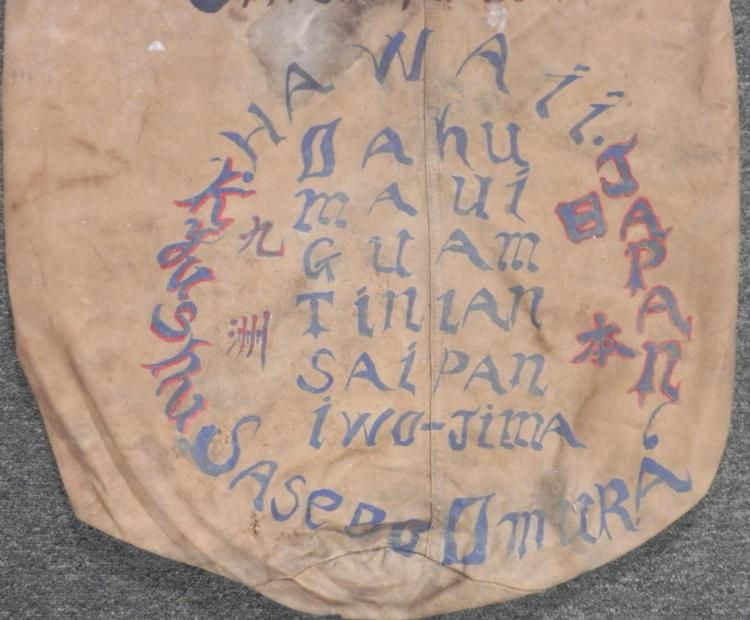 HAWAii.
OAhu
mAui
GUAm
TiniAn
SAiPAn
iwo-JimA
JAPAn
日本
Kyushu
九洲
SASebo OmuRA